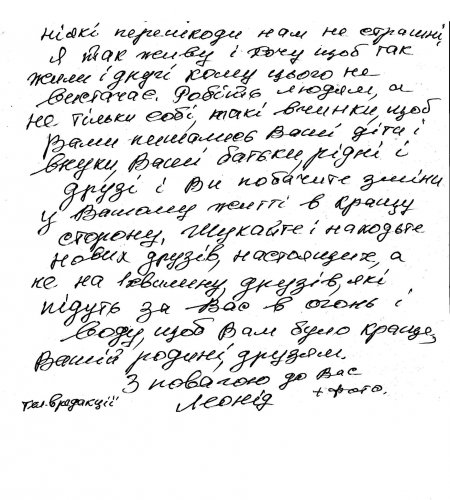 ніякі перешкоди нам не страшні
Я так живу і хочу щоб так
жили і другі кому цього не
вистачає. Робіть людям, а
не тільки собі, такі вчинки, щоб
Вами пишались Ваші діти і
внуки, Ваші батьки, рідні і
друзі і Ви побачите зміни
у Вашому житті в кращу
сторону. Шукайте і находьте
нових друзів, настоящих, а
не на 1 хвилину, друзів, які
підуть за Вас в огонь і
воду, щоб Вам було краще,
Вашій родині, друзям.
З повагою до Вас
тел. в редакції Леонід + фото.